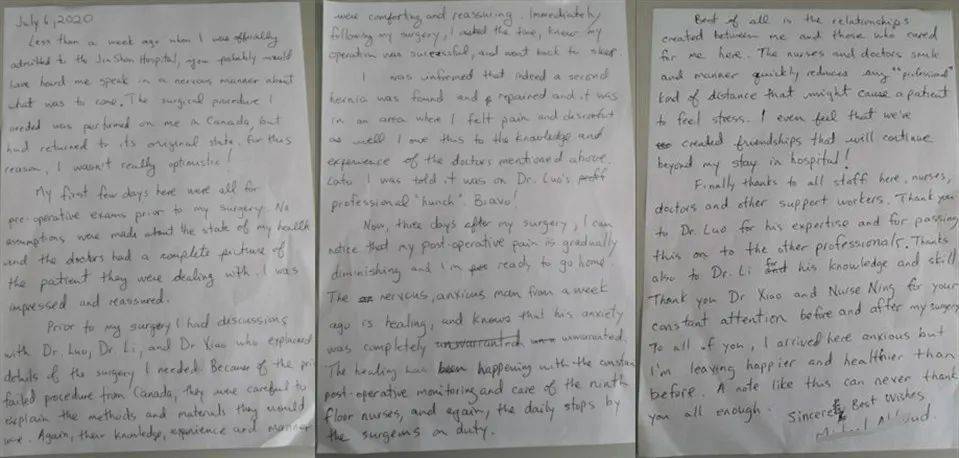 July 6, 2020
Less than a week ago when I was officially
admitted to the JinShan Hospital, you probably would
have heard me speak in a nervous manner about
what was to come. The surgical procedure I
needed was performed on me in Canada, but
had returned to its original state. For this
reason, I wasn't really optimistic!
My first few days here were all for
pre-operative exams prior to my surgery. No
assumptions were made about the state of my health
and the doctors had a complete picture of
the patient they were dealing with. I was
impressed and reassured.
Prior to my surgery I had discussions
with Dr. Luo, Dr. Li, and Dr Xiao who explained
details of the surgery I needed. Because of the
failed procedure from Canada, they were careful to
explain the methods and materials they would
use. Again, their knowledge, experience and manner
were comforting and reassuring. Immediately
following my surgery, I asked the time, knew my
operation was successful, and went back to sleep.
I was informed that indeed a second
hernia was found and repaired and it was
in an area where I felt pain and discomfort
as well. I owe this to the knowledge and
experience of the doctors mentioned above.
Later I was told it was on Dr. Luo's
professional "hunch". Bravo!
Now, three days after my surgery, I can
notice that my post-operative pain is gradually
diminishing and I'm ready to go home.
The nervous, anxious man from a week
ago is healing, and knows that his anxiety
was completely unwarranted unwarranted.
The healing has been happening with the constant
post-operative monitoring and care of the ninth
floor nurses, and again, the daily stops by
the surgeons on duty.
Best of all is the relationships
created between me and those who cared
for me here. The nurses and doctors smile
and manner quickly reduces any "professional"
kind of distance that might cause a patient
to feel stress. I even feel that we've
created friendships that will continue
beyond my stay in hospital!
Finally thanks to all staff here, nurses,
doctors and other support workers. Thank you
to Dr. Luo for his expertise and for passing
this on to the other professionals. Thanks
also to Dr. Li for his knowledge and skill
Thank you Dr Xiao and Nurse Ning for your
constant attention before and after my surgery
To all of you, I arrived here anxious but
I'm leaving happier and healthier than
before. A note like this can never thank
you all enough.
Sincere Best Wishes,